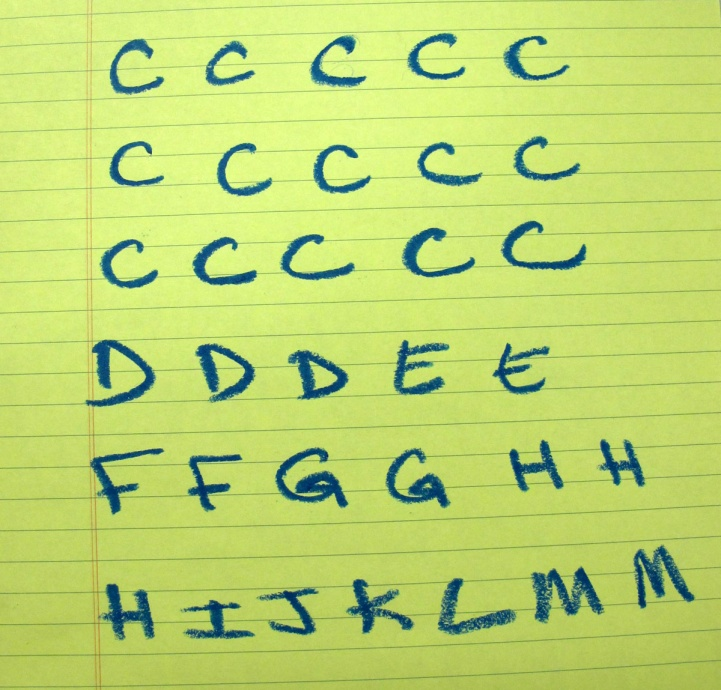 C C C C C
C C C C C
C C C C C
D D D E E
F F G G H H
H I J K L M M